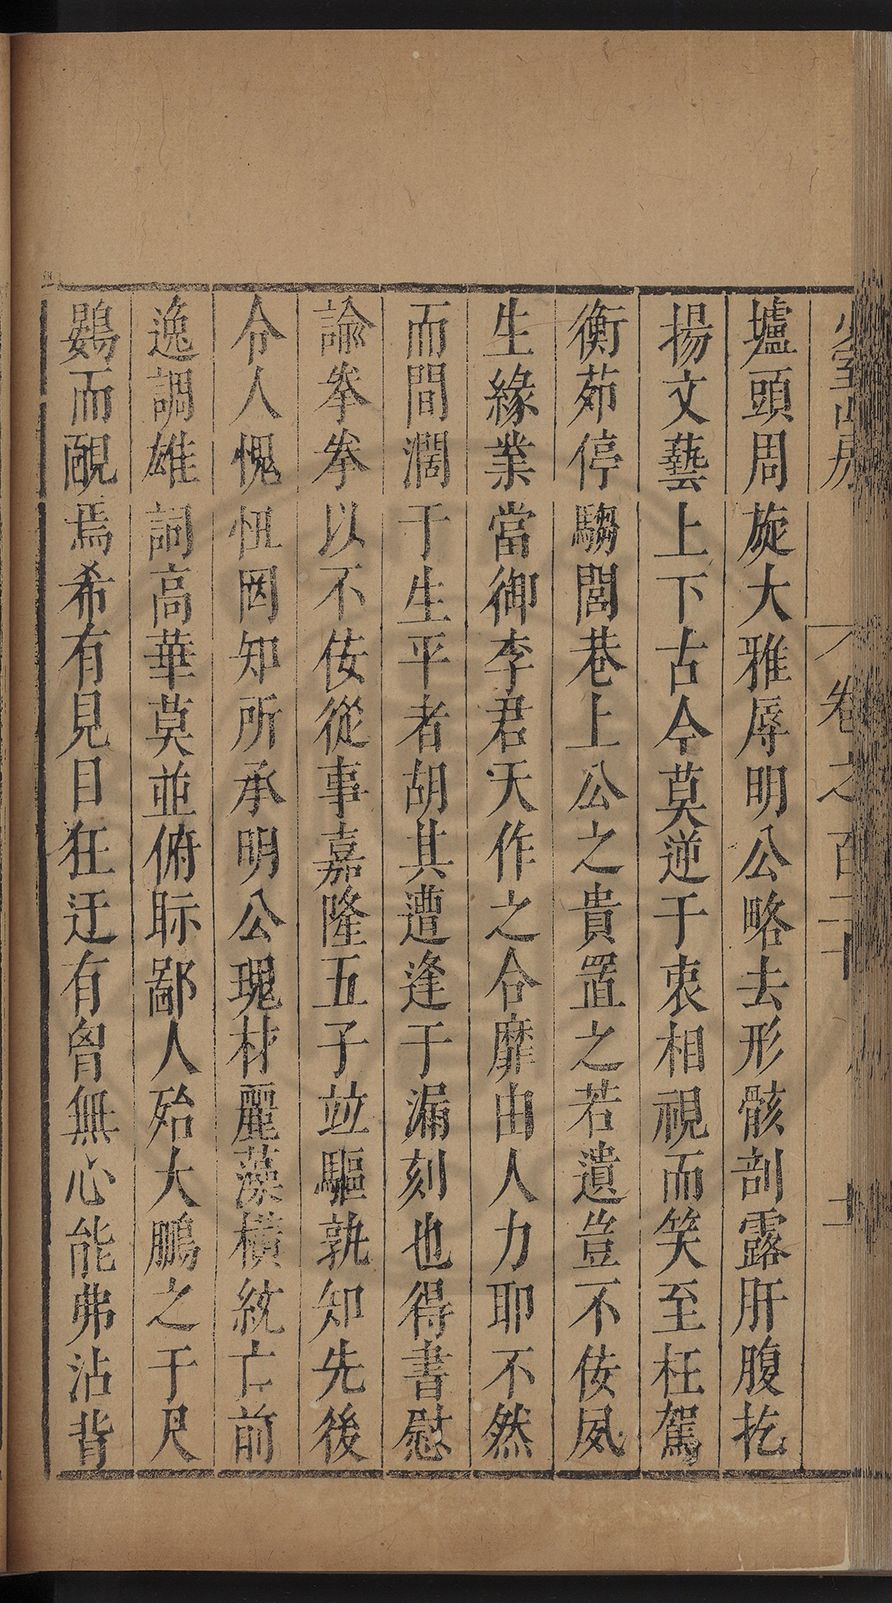 少室山房 卷之百二十
壚頭周旋大雅辱明公略去形骸剖露肝腹扢
揚文藝上下古今莫逆于衷相視而笑至枉駕
衡茆停驂閭巷上公之貴置之若遺豈不佞夙
生緣業當御李君天作之合靡由人力耶不然
而間濶于生平者胡其遭逢于漏刻也得書慰
諭拳拳以不佞從事嘉隆五子竝驅孰知先後
令人愧忸罔知所承明公瑰材麗藻橫絶亡前
逸調雄詞高華莫並俯眎鄙人殆大鵬之于尺
鷃而覼焉希有見日狂迂有胷無心能弗沾背